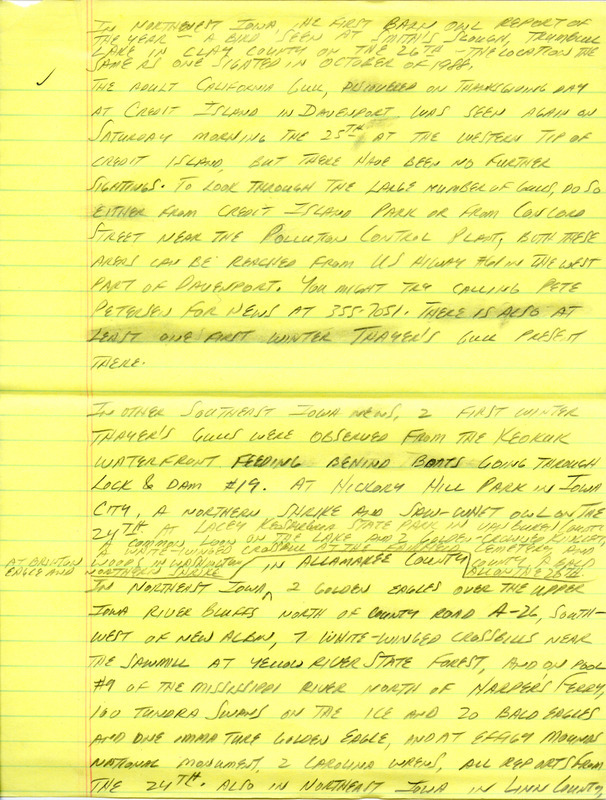 IN NORTHWEST IOWA, THE FIRST BARN OWL REPORT OF
THE YEAR - A BIRD SEEN AT SMITH'S SLOUGH, TRUMBULL
LAKE IN CLAY COUNTY ON THE 26TH - THE LOCATION THE
SAME AS ONE SIGHTED IN OCTOBER OF 1988.
THE ADULT CALIFORNIA GULL, DISCOVERED ON THANKSGIVING DAY
AT CREDIT ISLAND IN DAVENPORT WAS SEEN AGAIN ON
SATURDAY MORNING THE 25TH AT THE WESTERN TIP OF
CREDIT ISLAND, BUT THERE HAVE BEEN NO FURTHER
SIGHTINGS. TO LOOK THROUGH THE LARGE NUMBER OF GULLS, DO SO
EITHER FROM CREDIT ISLAND PARK OR FROM CONCORD
STREET NEAR THE POLLUTION CONTROL PLANT, BOTH THESE
AREAS CAN BE REACHED FROM US HIWAY #61 IN THE WEST
PART OF DAVENPORT. YOU MIGHT TRY CALLING PETE
PETERSEN FOR NEWS AT 355-7051. THERE IS ALSO AT
LEAST ONE FIRST WINTER THAYER'S GULL PRESENT
THERE.
IN OTHER SOUTHEAST IOWA NEWS, 2 FIRST WINTER
THAYER'S GULLS WERE OBSERVED FROM THE KEOKUK
WATERFRONT FEEDING BEHIND BOATS GOING THROUGH
LOCK & DAM #19. AT HICKORY HILL PARK IN IOWA
CITY, A NORTHERN SHRIKE AND SAW-WHET OWL ON THE
24TH. AT LACEY KEOSAUQUA STATE PARK IN VAN BUREN COUNTY
A COMMON LOON ON THE LAKE AND 2 GOLDEN-CROWNED KINGLET,
A WHITE-WINGED CROSSBILL AT THE FAIRFIELD CEMETERY, AND
AT BRIGHTON WOODS IN WASHINGTON COUNTY, A BALD
EAGLE AND NORTHERN SHRIKE ALL ON THE 26TH.
IN ALLAMAKEE COUNTY
IN NORTHEAST IOWA, 2 GOLDEN EAGLES OVER THE UPPER
IOWA RIVER BLUFFS NORTH OF COUNTY ROAD A-26, SOUTH-
WEST OF NEW ALBIN, 7 WHITE-WINGED CROSSBILLS NEAR
THE SAWMILL AT YELLOW RIVER STATE FOREST, AND ON POOL
#9 OF THE MISSISSIPPI RIVER NORTH OF HARPER'S FERRY,
100 TUNDRA SWANS ON THE ICE AND 20 BALD EAGLES
AND ONE IMMATURE GOLDEN EAGLE, AND AT EFFIGY MOUNDS
NATIONAL MONUMENT, 2 CAROLINA WRENS, ALL REPORTS FROM
THE 24TH. ALSO IN NORTHEAST IOWA IN LINN COUNTY,